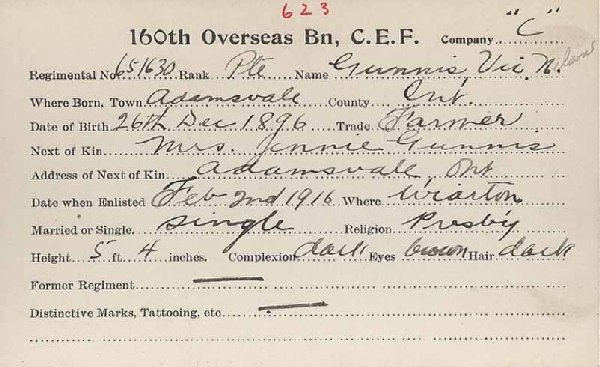 623
160th Overseas Bn, C.E.F. Company "C"
Regimental No. 651630 Rank Pte Name Gunnis, Vic. N.
Where Born, Town Adamsvale County Ont.
Date of Birth 26th Dec 1896 Trade Farmer
Next of Kin Mrs. Jennie Gunnis
Address of Next of Kin Adamsvale, Ont
Date when Enlisted Feb 2nd 1916 Where Wiarton
Married or Single single Religion Presby
Height 5 ft. 4 inches. Complexion dark Eyes brown Hair dark
Former Regiment —
Distinctive Marks, Tattooing, etc —